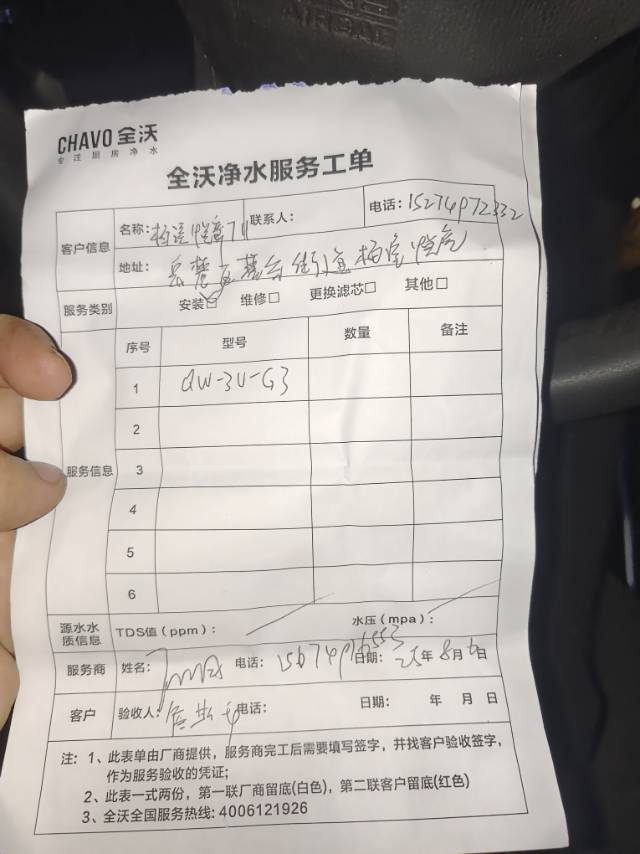 AIRBAG
CHAVO 全沃
专注厨房净水
全沃净水服务工单
客户信息
名称： 联系人： 电话：15274972332
地址：岳麓区 街道
服务类别 安装☑ 维修□ 更换滤芯□ 其他□
服务信息
序号 型号 数量 备注
1 QW-3U-G3
2
3
4
5
6
源水水质信息 TDS值（ppm）： 水压（mpa）：
服务商 姓名： 电话： 日期：25年8月6日
客户 验收人： 电话： 日期： 年 月 日
注：1、此表单由厂商提供，服务商完工后需要填写签字，并找客户验收签字，
作为服务验收的凭证；
2、此表一式两份，第一联厂商留底(白色)，第二联客户留底(红色)
3、全沃全国服务热线: 4006121926